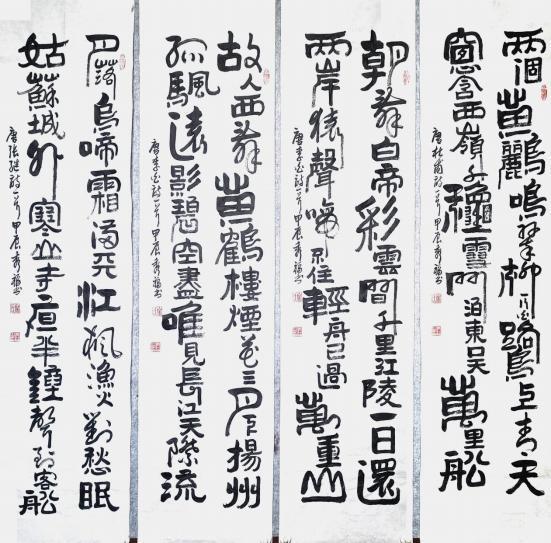 两個黄鸝鳴翠柳一行白鷺上青天
窗含西嶺千秋雪门泊東吴萬里船
唐杜甫詩一首 甲辰
朝辭白帝彩雲間千里江陵一日還
兩岸猿聲啼不住輕舟已過萬重山
唐李白詩一首 甲辰
故人西辭黄鶴樓煙花三月下揚州
孤颿遠影碧空盡唯見長江天際流
唐李白詩一首 甲辰
月落烏啼霜满天江楓漁火對愁眠
姑蘇城外寒山寺夜半鐘聲到客船
唐張继詩一首 甲辰